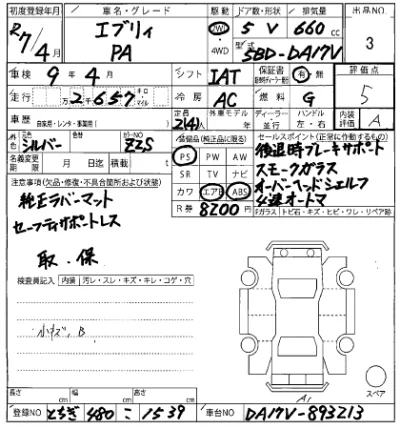 初度登録年月 車名・グレード 駆動 ドア数・形状 排気量 出品NO
R7/4月 エブリィ PA 2WD ・ 4WD 5 V 660 cc 3
型式 5BD-DA17V
車検 9年4月 シフト IAT 保証書 有・無 評価点 5
走行 2657 キロ マイル 冷房 AC 燃料 G
車歴 自家用・レンタ・事業用( ) 定員 2(4) 外車モデル ディーラー 並行 ハンドル 左・右 内装評価 A
外色 元色 シルバー カラーNO ZZS 装備(純正品に限る) セールスポイント(正常に作動するもの)
名義変更期限 月 日迄 積載 t
PS PW AW
SR TV ナビ
カワ エアB ABS
R券 8200
後退時ブレーキサポート
スモークガラス
オーバーヘッドシェルフ
4速オートマ
Fガラス(トビ石・キズ・ヒビ・ワレ・リペア跡)
注意事項(欠品・修復・不具合箇所および状態)
純正ラバーマット
セーフティサポートレス
取・保
検査員記入 内装 汚レ・スレ・キズ・キレ・コゲ・穴
小キズ、B
長さ cm 幅 cm 高さ cm
A1
スペア
登録NO とちぎ 480 こ 1539 車台NO DA17V-893213